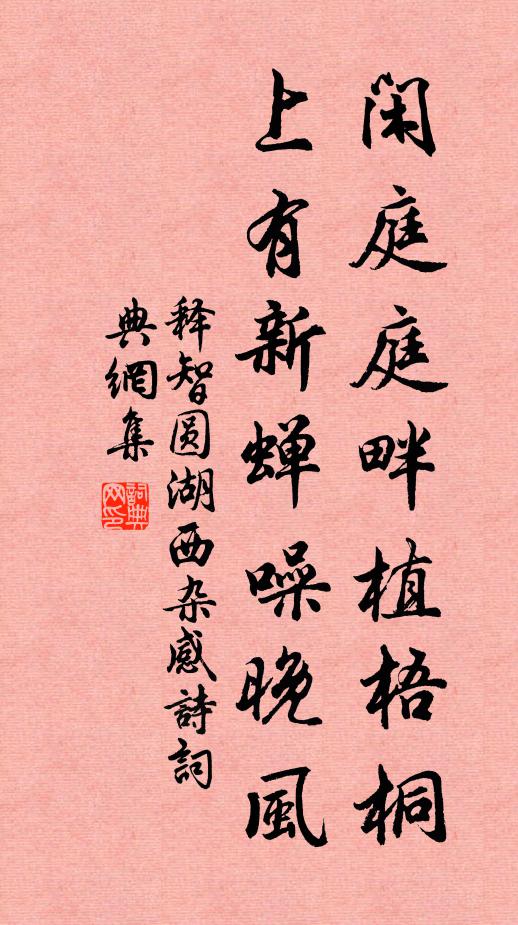 闲庭庭畔植梧桐
上有新蝉噪晚風
释智圆湖西杂感詩詞
典網集
詞典网印